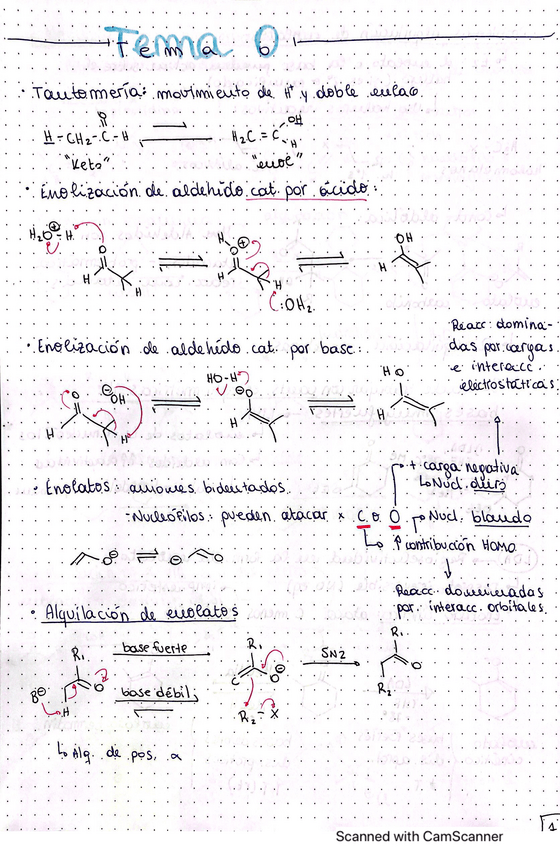 Tema 0
· Tautomería: movimiento de H⁺ y doble enlace.
H-CH₂-C-H
O
H₂C=C
OH
H
"Keto"
"enol"
· Enolización de aldehído cat. por ácido:
H₂O-H
⊕
O
H
H
H
O
⊕
H
H
:OH₂
OH
H
· Enolización de aldehído cat. por base:
O
⊖
OH
H
H
HO-H
⊖O
H
H
O
H
Reacc. domina-
das por cargas
e interacc.
electrostáticas.
+ carga negativa
↳ Nucl. duro
· Enolatos: aniones bidentados.
-Nucleófilos: pueden atacar x C o O
Nucl. blando
↑ contribución HOMO
O⊖ ⇌ ⊖ O
Reacc. dominadas
por interacc. orbitales.
· Alquilación de enolatos
R₁
O
B⊖
H
base fuerte
base débil
R₁
C
O⊖
R₂-X
SN2
R₁
O
R₂
↳ Alq. de pos. α
1
Scanned with CamScanner